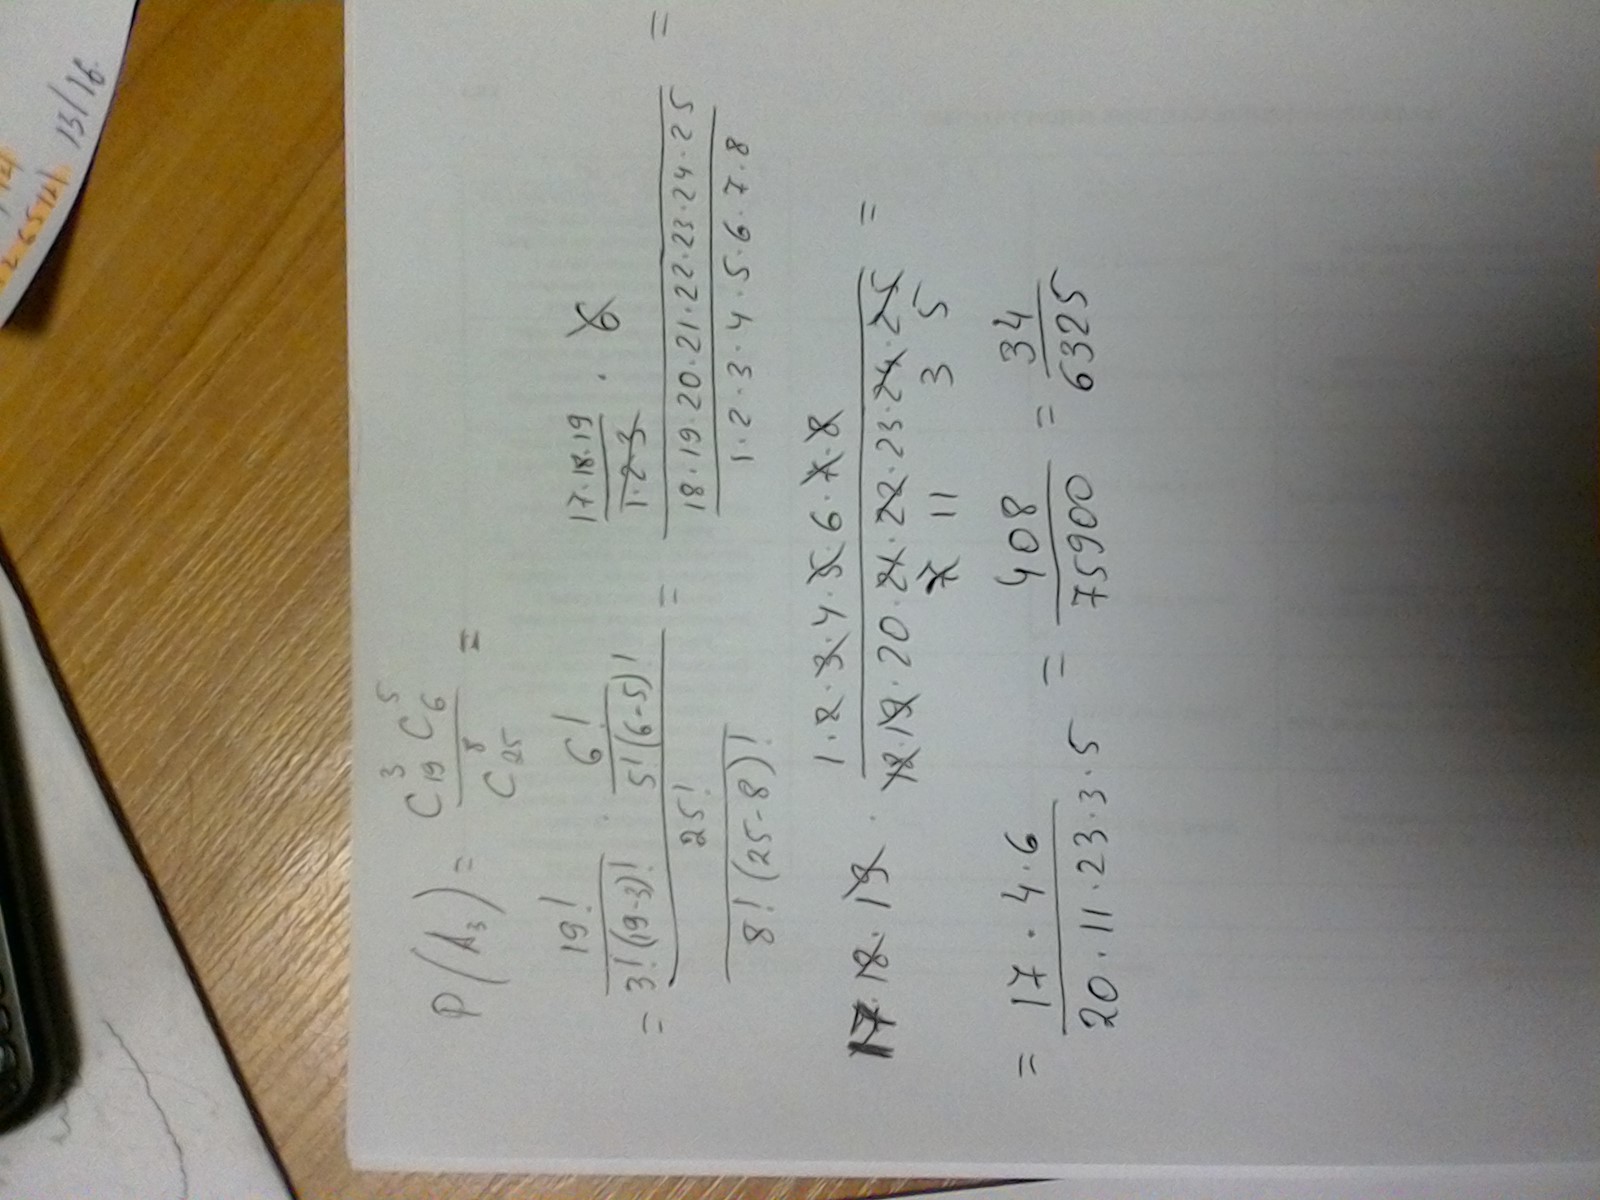 P(A₃) = (C₁₉³ C₆⁵) / C₂₅⁸ =
= (19! / 3!(19-3)! · 6! / 5!(6-5)!) / (25! / 8!(25-8)!) = (17·18·19 / 1·2·3 · 6) / (18·19·20·21·22·23·24·25 / 1·2·3·4·5·6·7·8) =
17·18·19 · 1·2·3·4·5·6·7·8 / 18·19·20·21·22·23·24·25 =
7 11 3 5
= 17·4·6 / 20·11·23·3·5 = 408 / 75900 = 34 / 6325
13/16